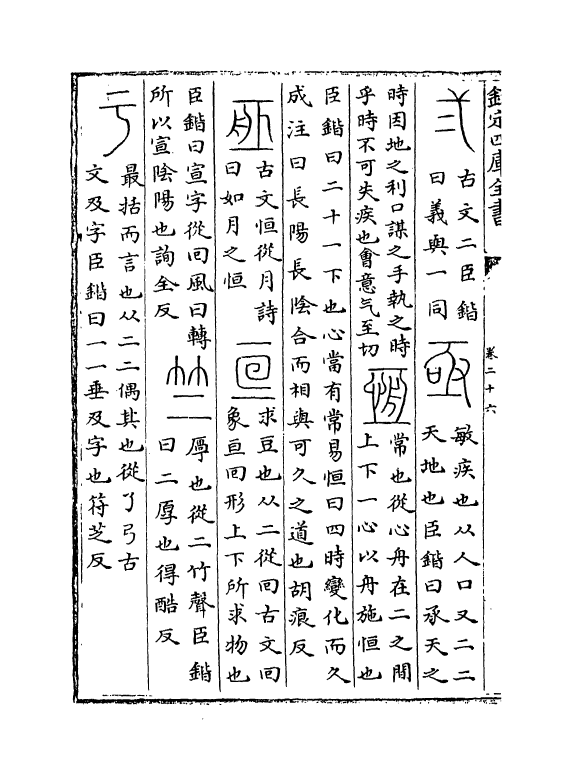 欽定四庫全書
卷二十六
弍
古文二臣鍇
曰義與一同
亟
敏疾也从人口又二二
天地也臣鍇曰承天之
時因地之利口謀之手執之時
乎時不可失疾也會意气至切
恆
常也從心舟在二之間
上下一心以舟施恒也
臣鍇曰二十一下也心當有常易恒曰四時變化而久
成注曰長陽長陰合而相與可久之道也胡痕反
古文恒從月詩
曰如月之恒
亘
求豆也从二從回古文回
象亘回形上下所求物也
臣鍇曰宣字從回風曰轉
所以宣陰陽也詢全反
竺
厚也從二竹聲臣鍇
曰二厚也得酷反
凡
最括而言也从二二偶其也從了弓古
文及字臣鍇曰一一垂及字也符芝反